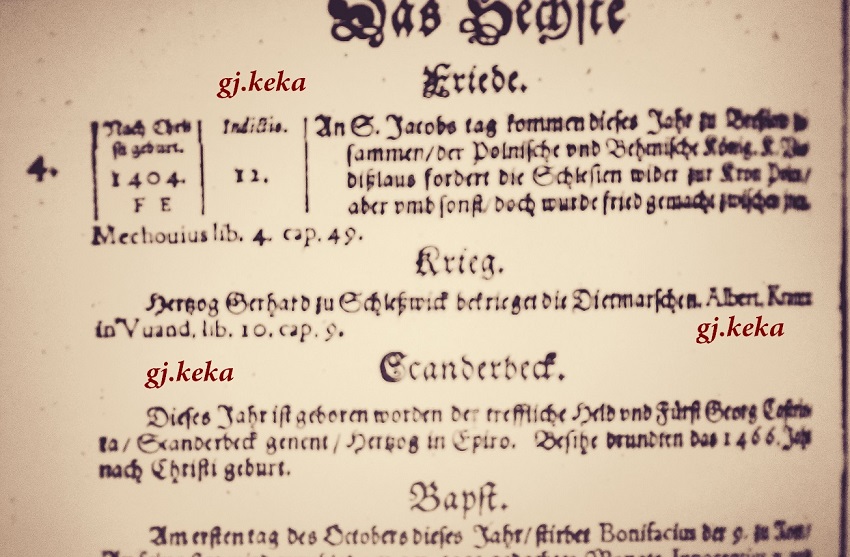 Das Sechste
gj.keka
Friede.
Nach Chri=
sti geburt.
1404.
F E
Indictio.
12.
4.
An S. Jacobs tag kommen dieses Jahr zu
sammen/der Polnische vnd Behmische König. K.
dißlaus fordert die Schlesien wider zur Kron Poln/
aber vmb sonst/doch wurde fried gemacht zwischen jnen.
Mechouius lib. 4. cap. 49.
Krieg.
Hertzog Gerhard zu Schleßwick bekrieget die Dietmarschen. Albert. Krantz
in Vuand. lib. 10. cap. 9.
gj.keka
gj.keka
Scanderbeck.
Dieses Jahr ist geboren worden der treffliche Held vnd Fürst Georg
ta/ Scanderbeck genent/ Hertzog in Epiro. Besihe drundten das 1466. Jahr
nach Christi geburt.
Bapst.
Am ersten tag des Octobers dieses Jahr/ stirbet Bonifacius der 9. zu Rom/